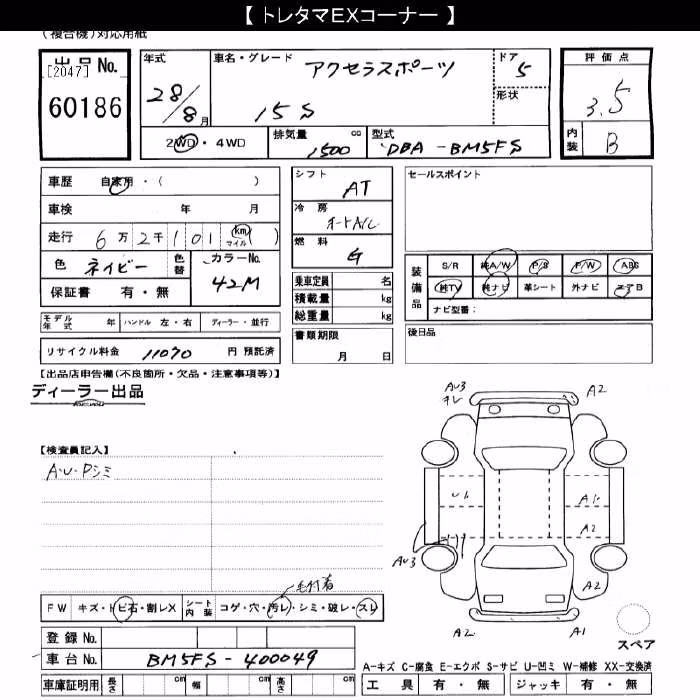 【 トレタマEXコーナー 】
(複合機)対応用紙
出品 No.
[2047]
60186
年式
28/8月
車名・グレード
アクセラスポーツ
15S
ドア
5
形状
2WD・4WD
排気量 cc
1500
型式
DBA-BM5FS
評価点
3.5
内装
B
車歴 自家用・( )
車検 年 月
走行 6万2千101 (km マイル)
色 ネイビー 色替
カラーNo.
42M
保証書 有・無
シフト
AT
冷房
オートA/C
燃料
G
乗車定員 名
積載量 kg
総重量 kg
書類期限
月 日
セールスポイント
装備品
S/R 純A/W P/S P/W ABS
純TV 純ナビ 革シート 外ナビ エアB
ナビ型番:
後日品
モデル年式 年 ハンドル 左・右 ディーラー・並行
リサイクル料金 11070 円 預託済
【出品店申告欄(不良箇所・欠品・注意事項等)】
ディーラー出品
【検査員記入】
A・U・Pシミ
AU3
キレ
A2
U1
A1
A2
AU3
A2
A2
A1
スペア
FW キズ・トビ石・割レX
シート内装 コゲ・穴・汚レ・シミ・破レ・スレ
毛付着
登録 No.
車台 No. BM5FS-400049
車庫証明用 長さ cm 幅 cm 高さ cm
A-キズ C-腐食 E-エクボ S-サビ U-凹ミ W-補修 XX-交換済
工具 有・無 ジャッキ 有・無